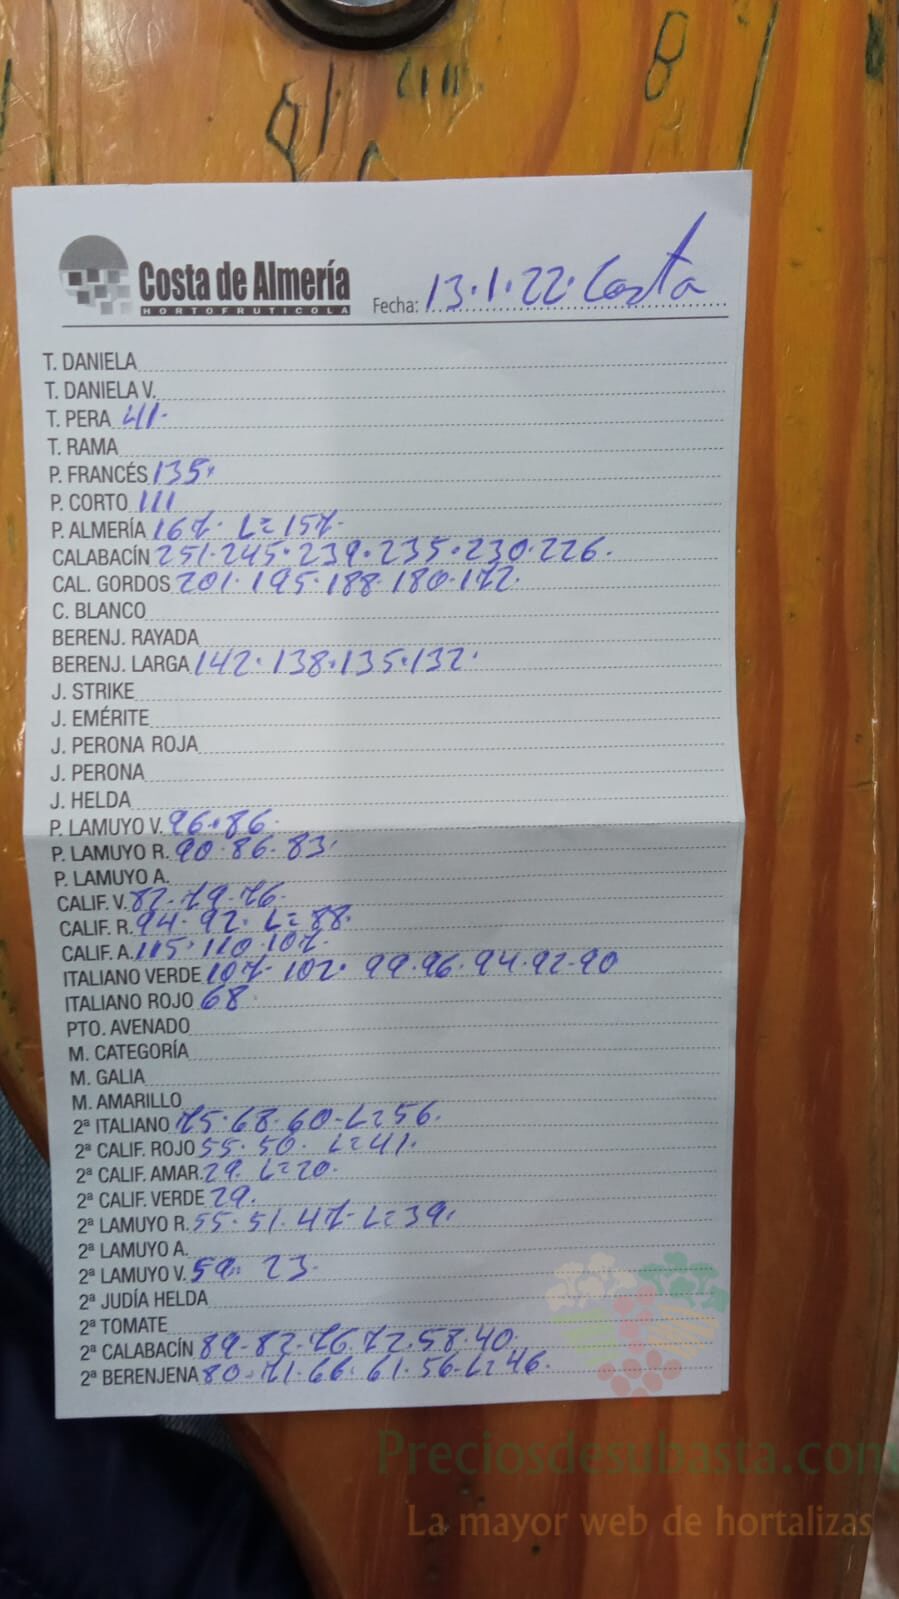 Costa de Almería
HORTOFRUTICOLA
Fecha: 13.1.22. Costa
T. DANIELA
T. DANIELA V.
T. PERA 41.
T. RAMA
P. FRANCÉS 135.
P. CORTO 111
P. ALMERÍA 167. L=157.
CALABACÍN 251.245.239.235.230.226.
CAL. GORDOS 201.195.188.180.172.
C. BLANCO
BERENJ. RAYADA
BERENJ. LARGA 142.138.135.132.
J. STRIKE
J. EMÉRITE
J. PERONA ROJA
J. PERONA
J. HELDA
P. LAMUYO V. 96.86.
P. LAMUYO R. 90.86.83.
P. LAMUYO A.
CALIF. V. 82.79.76.
CALIF. R. 94.92. L=88.
CALIF. A. 115.110.107.
ITALIANO VERDE 107. 102. 99.96.94.92.90
ITALIANO ROJO 68.
PTO. AVENADO
M. CATEGORÍA
M. GALIA
M. AMARILLO
2ª ITALIANO 75.68.60-L=56.
2ª CALIF. ROJO 55.50. L=41.
2ª CALIF. AMAR. 29. L=20.
2ª CALIF. VERDE 29.
2ª LAMUYO R. 55.51.47-L=39.
2ª LAMUYO A.
2ª LAMUYO V. 23.
2ª JUDÍA HELDA
2ª TOMATE
2ª CALABACÍN 89-82.76.72.58.40.
2ª BERENJENA 80.71.66.61.56.L=46.
Preciosdesubasta.com
La mayor web de hortalizas